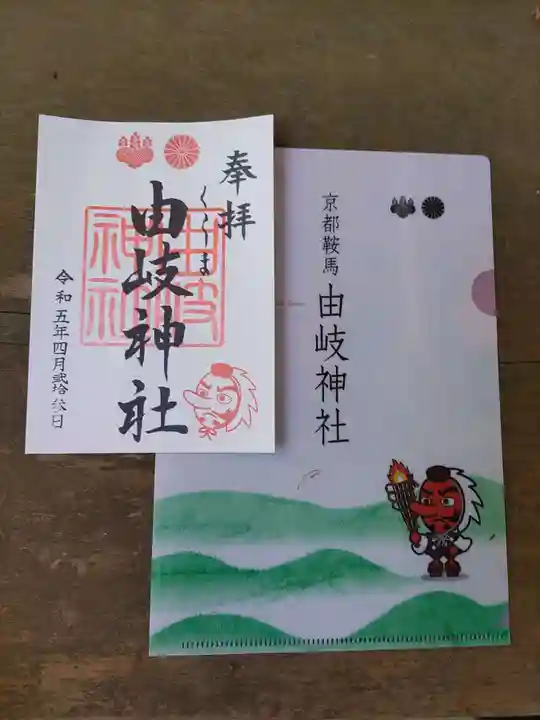 奉拝
くらま
由岐神社
由岐神社
令和五年四月弐拾参日
京都鞍馬
由岐神社